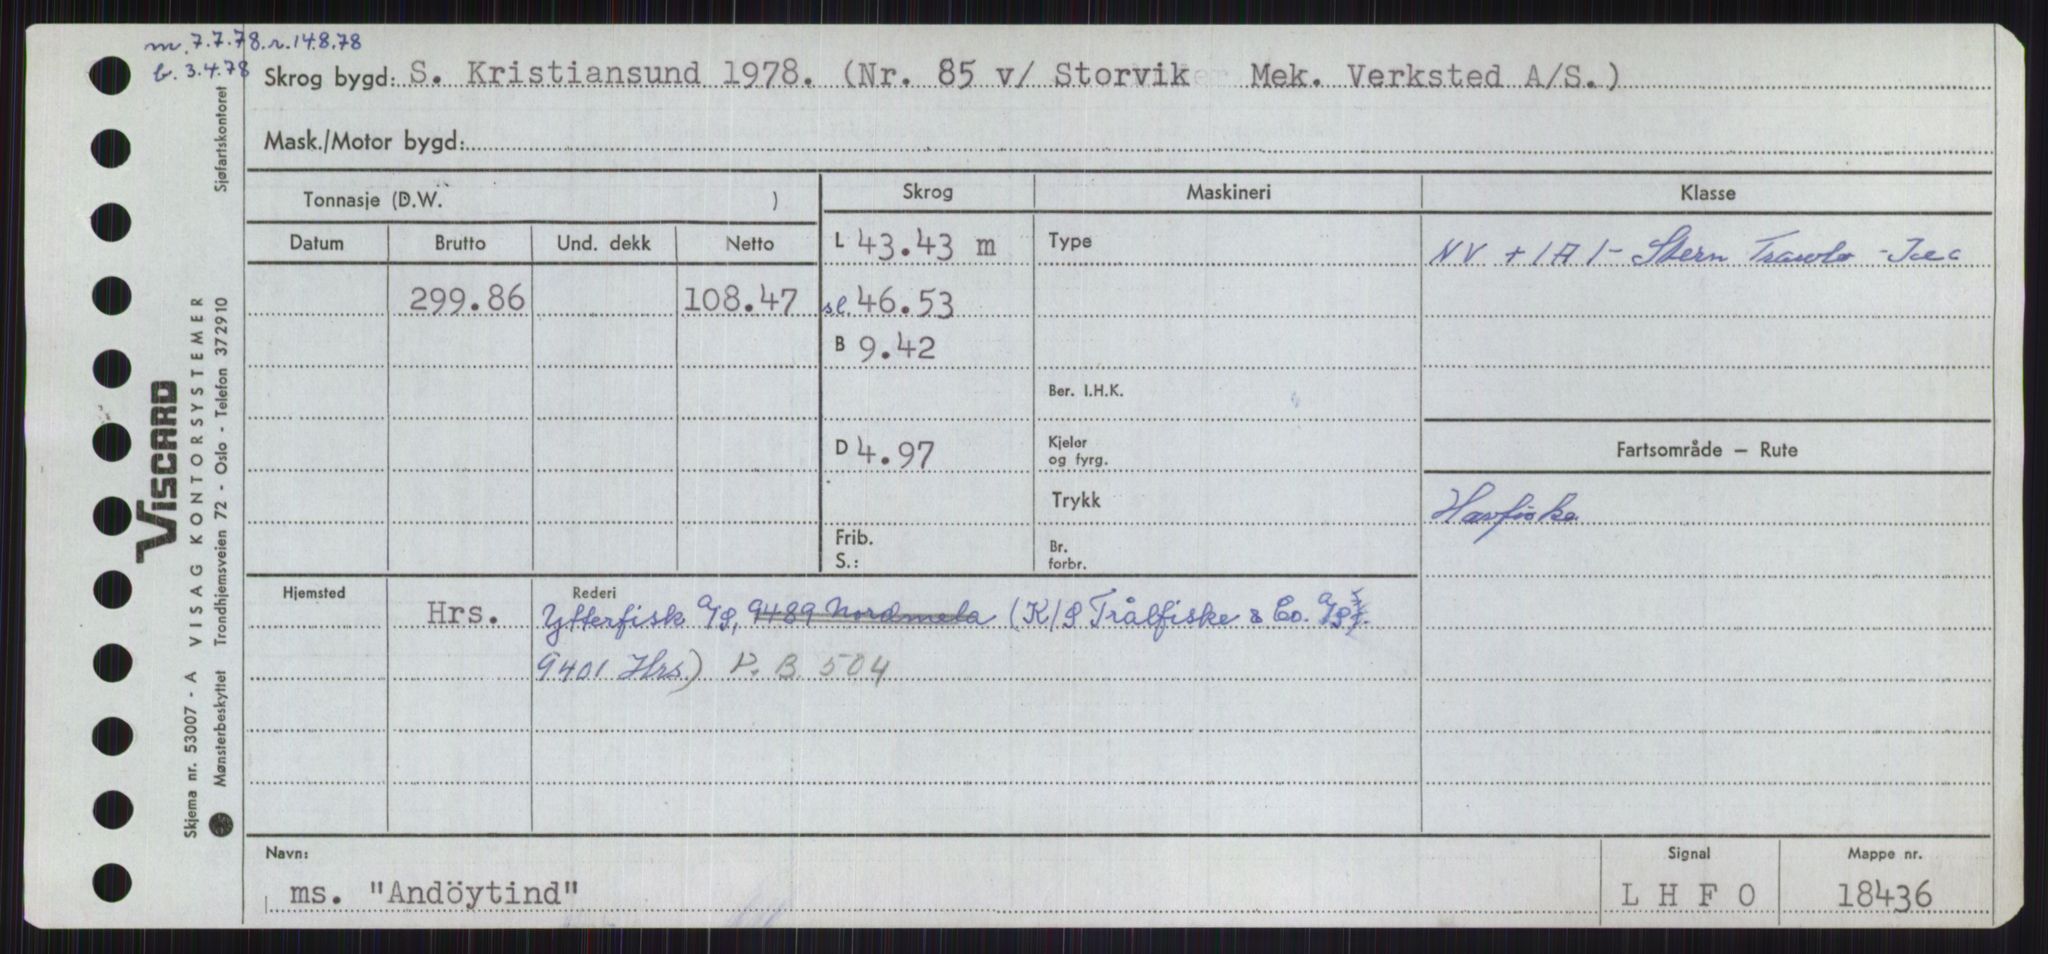 m. 7.7.78. r. 14.8.78
b. 3.4.78
Skrog bygd: S. Kristiansund 1978. (Nr. 85 v/ Storvik Mek. Verksted A/S.)
Mask./Motor bygd:
Tonnasje (D.W. )
Skrog
Maskineri
Klasse
Datum Brutto Und. dekk Netto
L 43.43 m
Type
NV + 1A1 - Stern Trawler - Ice C
299.86 108.47
sl. 46.53
B 9.42
Ber. I.H.K.
D 4.97
Kjeler
og fyrg.
Fartsområde – Rute
Trykk
Havfiske
Frib.
S.:
Br.
forbr.
Hjemsted
Hrs.
Rederi
Ytterfisk A/S, 9489 Nordmela (K/S Trålfiske & Co. A/S
9401 Hrs.) P.B. 504
Navn:
ms. "Andöytind"
Signal
L H F O
Mappe nr.
18436
Sjøfartskontoret
VISCARD
VISAG KONTORSYSTEMER
Trondhjemsveien 72 - Oslo - Telefon 372910
Skjema nr. 53007 - A
Mønsterbeskyttet